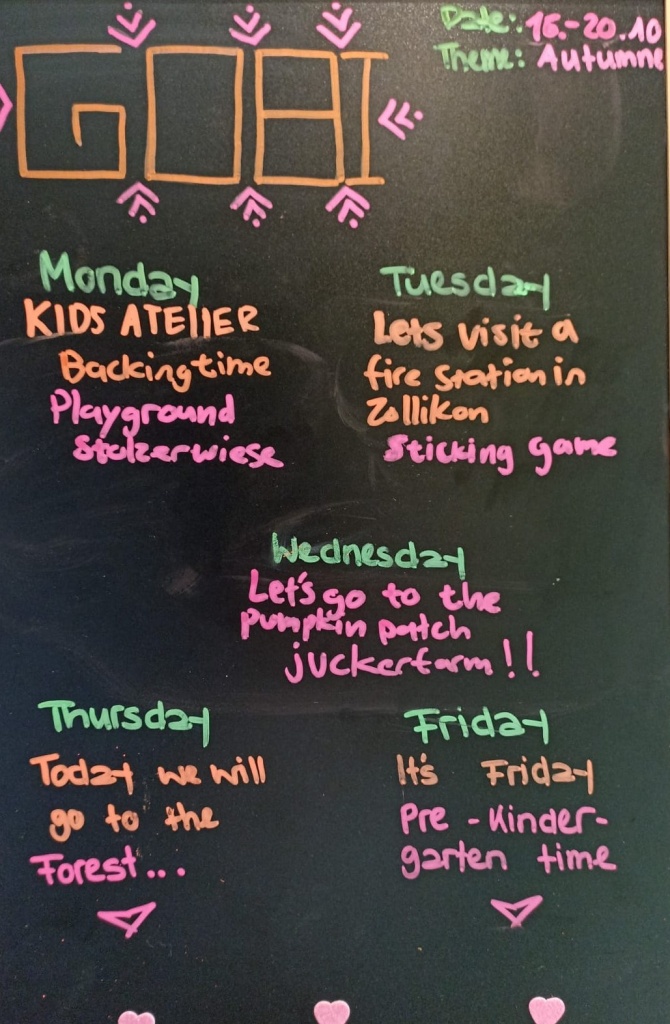 GOBI
Date: 16.-20.10
Theme: Autumne
Monday
KIDS ATELIER
Backing time
Playground
Stolzerwiese
Tuesday
Lets visit a
fire station in
Zollikon
Sticking game
Wednesday
Let's go to the
pumpkin patch
juckerfarm!!
Thursday
Today we will
go to the
Forest...
Friday
It's Friday
Pre-Kinder-
garten time